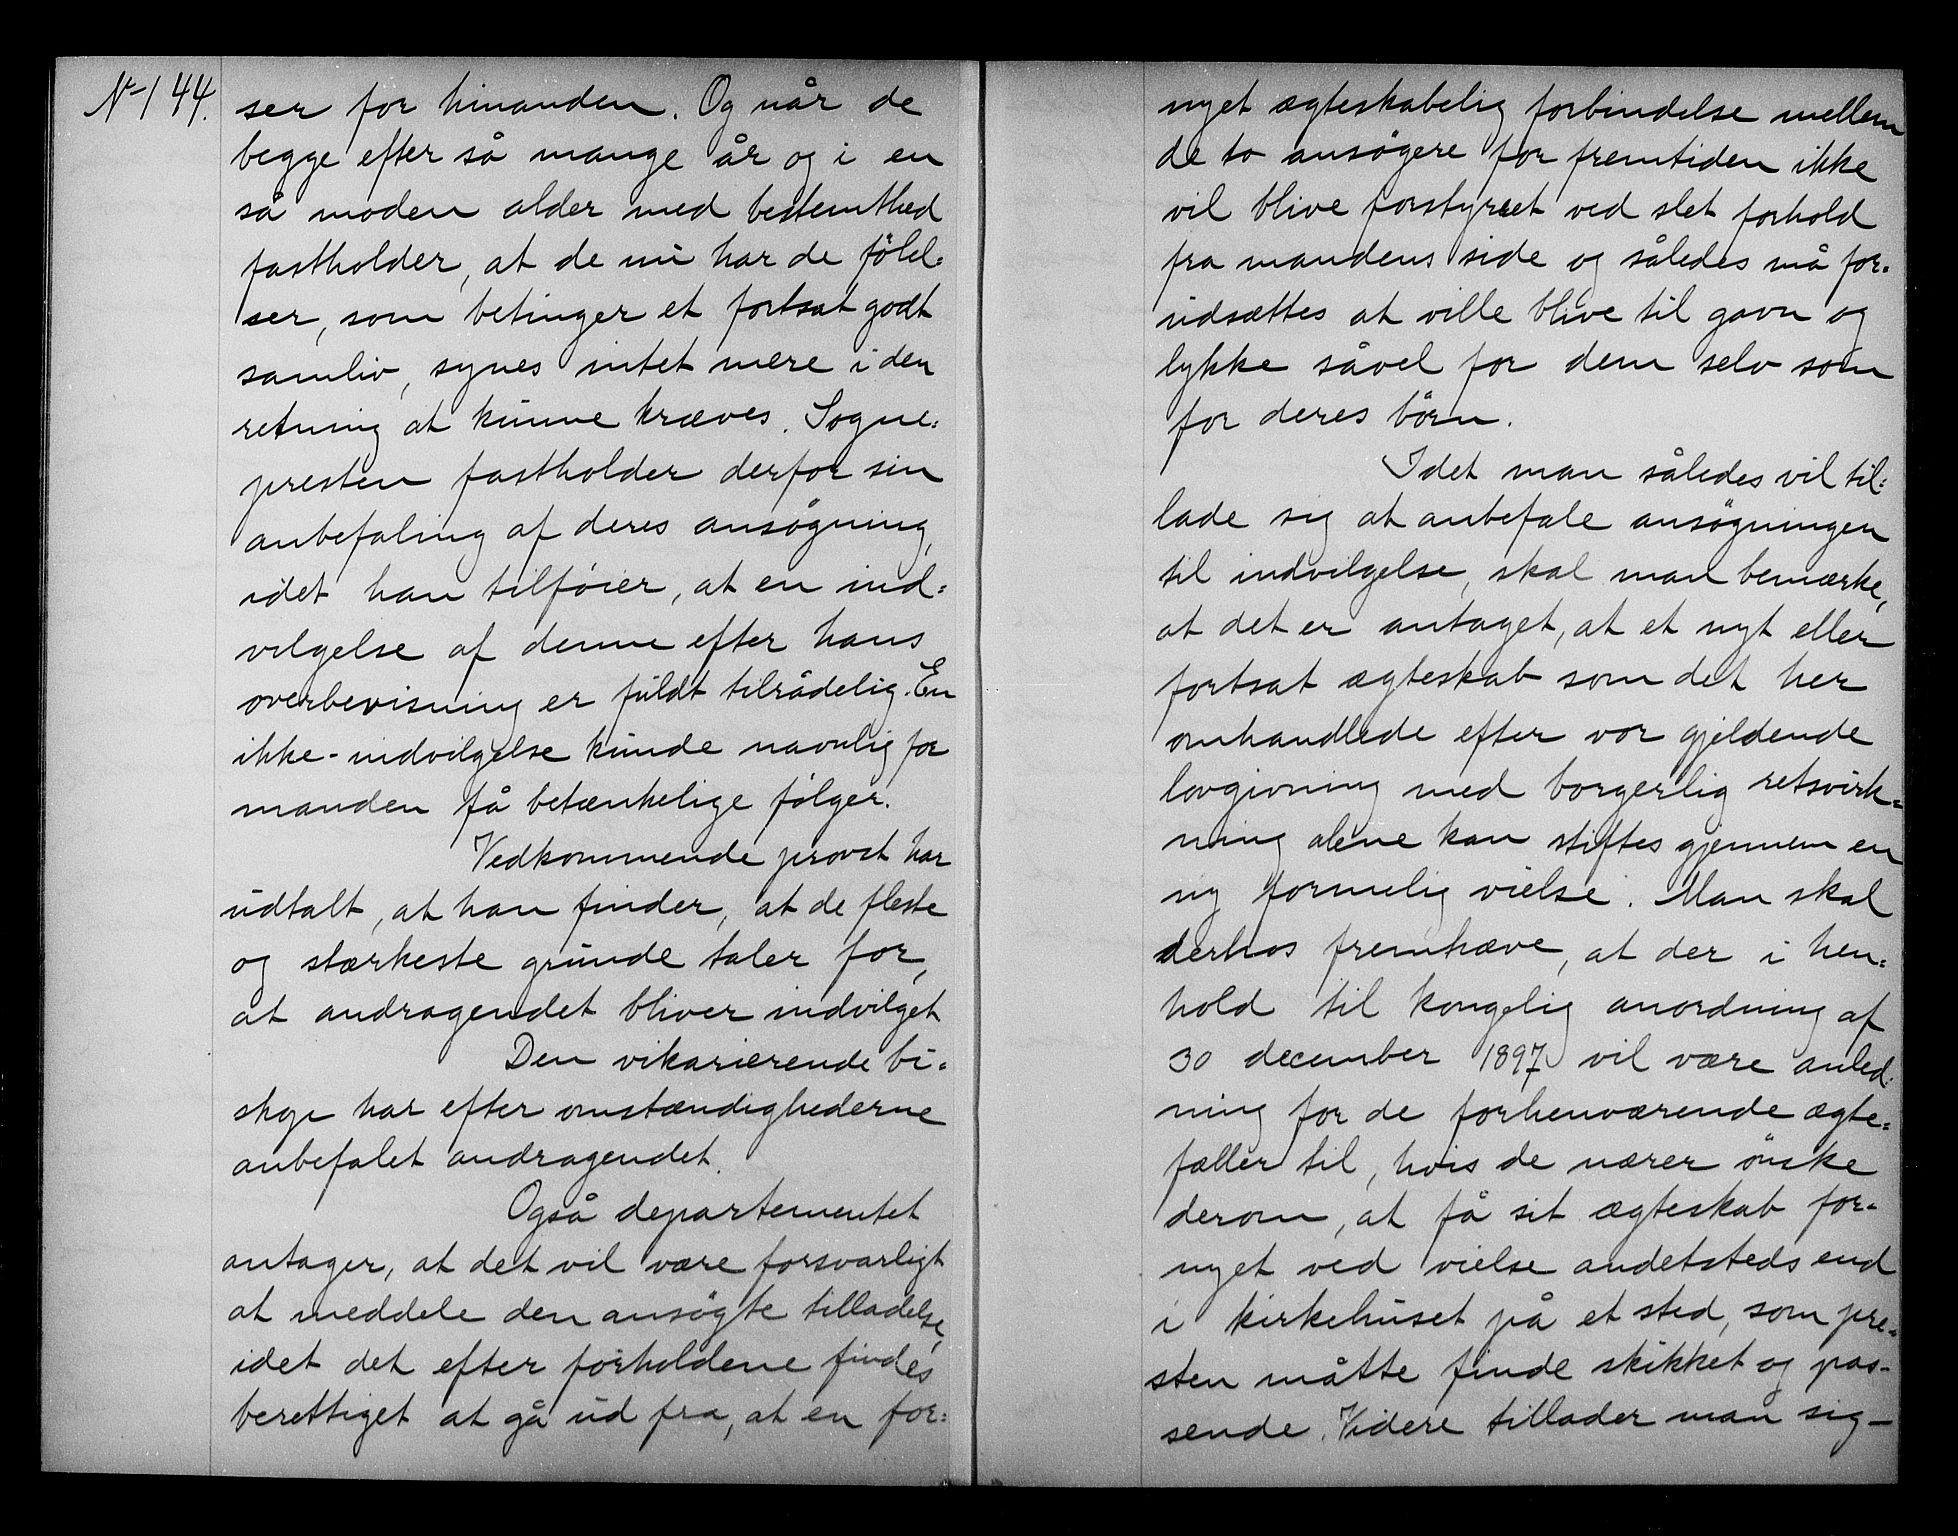 No 144.
ser for hinanden. Og når de
begge efter så mange år og i en
så moden alder med bestemthed
fastholder, at de nu har de følel-
ser, som betinger et fortsat godt
samliv, synes intet mere i den
retning at kunne kræves. Sogne-
presten fastholder derfor sin
anbefaling af deres ansøgning,
idet han tilføier, at en ind-
vilgelse af denne efter hans
overbevisning er fuldt tilrådelig. En
ikke-indvilgelse kunde navnlig for
manden få betænkelige følger.
Vedkommende provst har
udtalt, at han finder, at de fleste
og stærkeste grunde taler for,
at andragendet bliver indvilget
Den vikarierende bi-
skop har efter omstændighederne
anbefalet andragendet.
Også departementet
antager, at det vil være forsvarligt
at meddele den ansøgte tilladelse,
idet det efter forholdene findes
berettiget at gå ud fra, at en for-
nyet ægteskabelig forbindelse mellem
de to ansøgere for fremtiden ikke
vil blive forstyrret ved slet forhold
fra mandens side og således må for-
udsættes at ville blive til gavn og
lykke såvel for dem selv som
for deres børn.
Idet man således vil til-
lade sig at anbefale ansøgningen
til indvilgelse, skal man bemærke,
at det er antaget, at et nyt eller
fortsat ægteskab som det her
omhandlede efter vor gjeldende
lovgivning med borgerlig retsvirk-
ning alene kan stiftes gjennem en
ny formelig vielse. Man skal
derhos fremhæve, at der i hen-
hold til kongelig anordning af
30 december 1897 vil være anled-
ning for de forhenværende ægte-
fæller til, hvis de nærer ønske
derom, at få sit ægteskab for-
nyet ved vielse andetsteds end
i kirkehuset på et sted, som pre-
sten måtte finde skikket og pas-
sende. Videre tillader man sig -